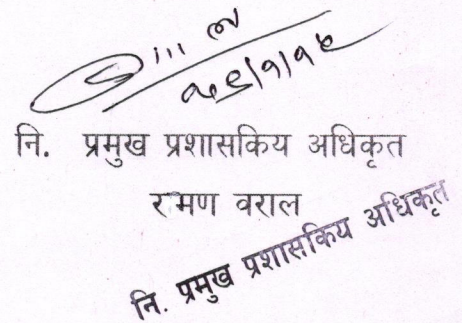 नि. प्रमुख प्रशासकिय अधिकृत
रमण वराल
नि. प्रमुख प्रशासकिय अधिकृत